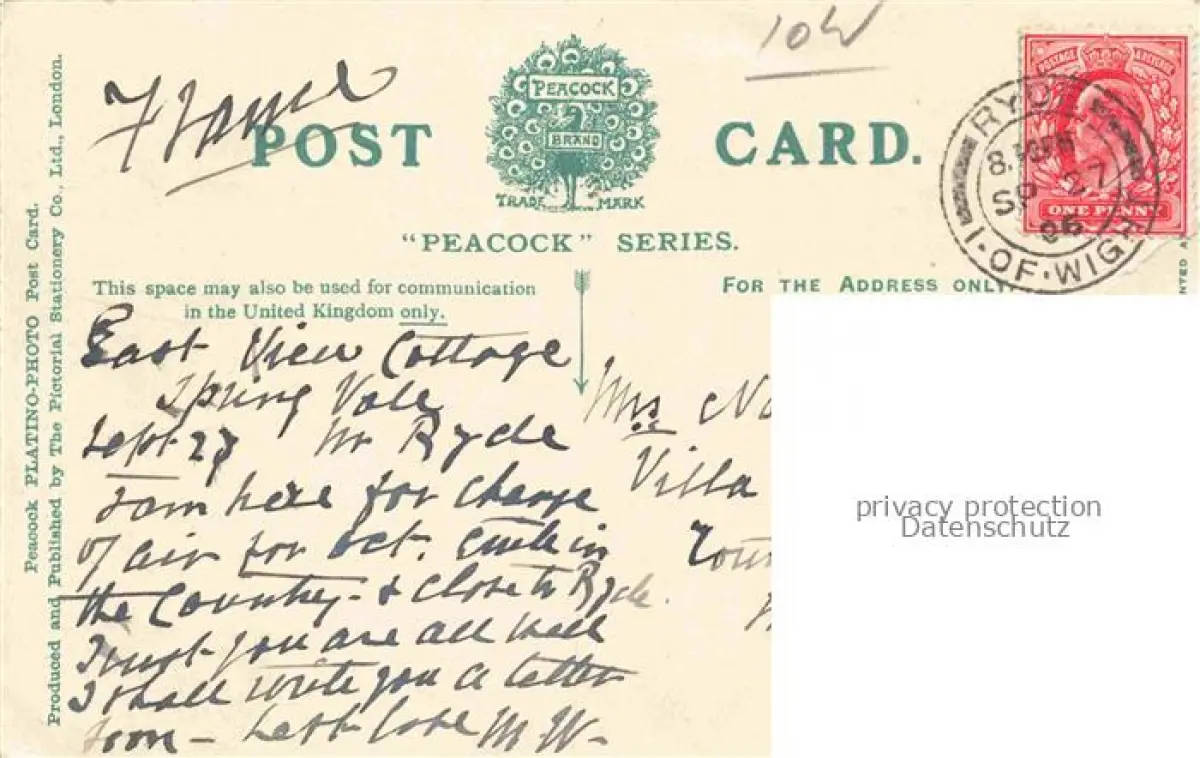 10W
France
POST CARD.
PEACOCK
BRAND
TRADE MARK
"PEACOCK" SERIES.
This space may also be used for communication
in the United Kingdom only.
FOR THE ADDRESS ONLY.
RYDE
SP 27
06
I. OF. WIGHT
POSTAGE
ONE PENNY
Peacock PLATINO-PHOTO Post Card.
Produced and Published by The Pictorial Stationery Co., Ltd., London.
East View Cottage
Spring Vale
Sept 27 Nr Ryde
I am here for change
of air for Oct. quite in
the Country - & close to Ryde.
Trust you are all well
I shall write you a letter
soon - best love M. W.
Mrs
Villa
privacy protection
Datenschutz